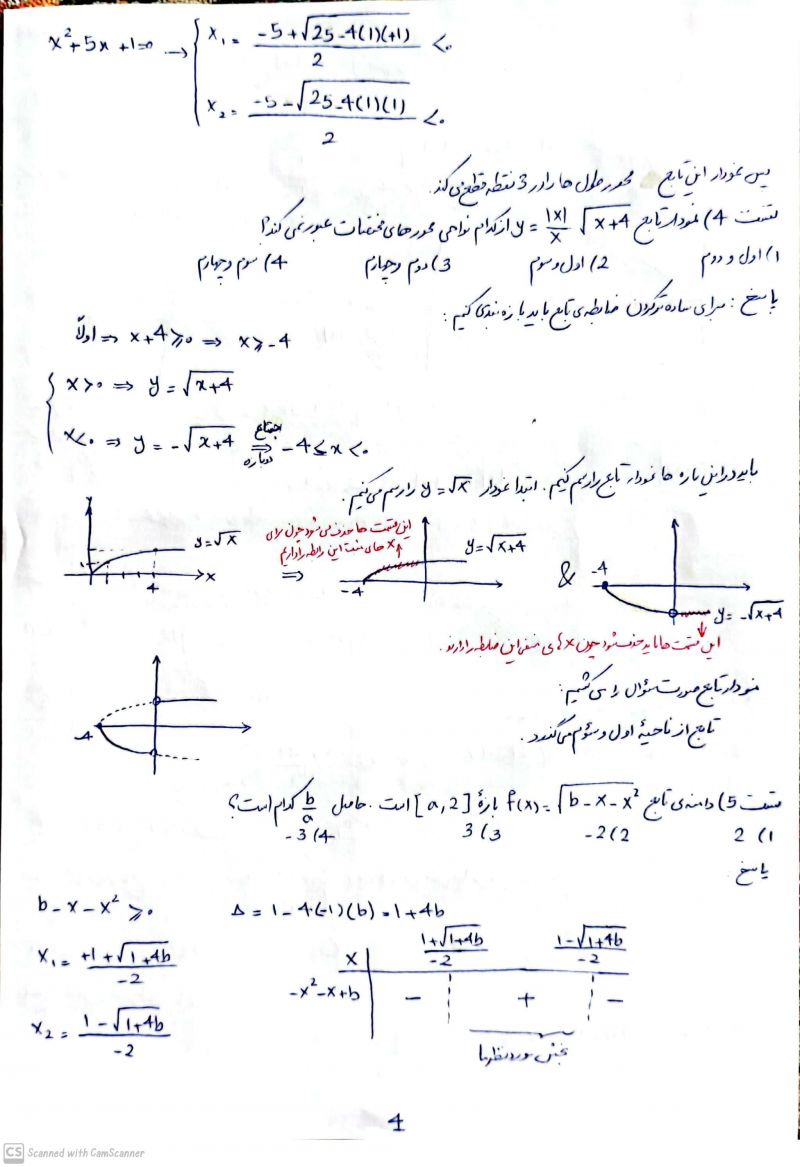 x²+5x+1=0 → { x₁ = (-5+√(25-4(1)(+1)))/2 <0
x₂ = (-5-√(25-4(1)(1)))/2 <0
پس نمودار این تابع محور طول ها را در 3 نقطه قطع می کند.
تست 4) نمودار تابع y = |x|/x √(x+4) از کدام نواحی محورهای مختصات عبور نمی کند؟
1) اول و دوم 2) اول و سوم 3) دوم و چهارم 4) سوم و چهارم
پاسخ: برای ساده تر کردن ضابطه ی تابع باید بازه بندی کنیم:
اولاً ⇒ x+4 ≥0 ⇒ x ≥ -4
{ x>0 ⇒ y = √(x+4)
x<0 ⇒ y = -√(x+4) اجتماع ⇒ دوباره -4 ≤ x <0
باید در این بازه ها نمودار تابع را رسم کنیم. ابتدا نمودار y = √x را رسم می کنیم.
y
y=√x
1
4
x
⇒
این قسمت ها حذف می شود چون برای
x های مثبت این رابطه را داریم
-4
y=√(x+4)
&
-4
y = -√(x+4)
این قسمت ها باید حذف شود چون x های منفی این ضابطه را دارند.
نمودار تابع صورت سؤال را می کشیم:
-4
تابع از ناحیهٔ اول و سوم می گذرد.
تست 5) دامنه ی تابع f(x) = √(b-x-x²) بازهٔ [a,2] است. حاصل b/a کدام است؟
1) 2 2) -2 3) 3 4) -3
پاسخ.
b-x-x² ≥0 Δ = 1-4(-1)(b) = 1+4b
x₁ = (+1+√(1+4b))/-2
x₂ = (1-√(1+4b))/-2
x | (1+√(1+4b))/-2 (1-√(1+4b))/-2
-x²-x+b | - + -
بخش مورد نظر ما
4
CS Scanned with CamScanner